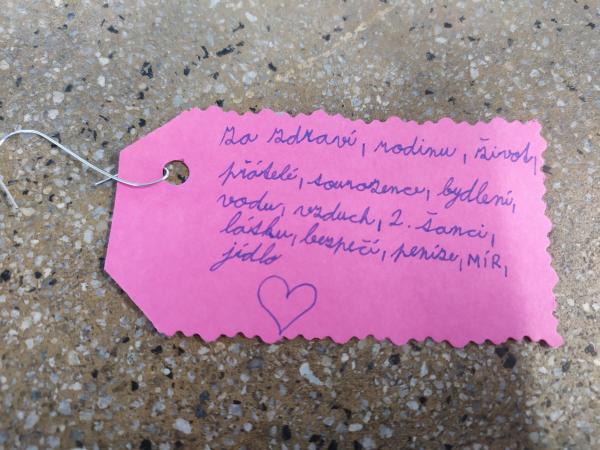 Za zdraví, rodinu, život,
přátelé, sourozence, bydlení,
vodu, vzduch, 2. šanci,
lásku, bezpečí, peníze, MÍR,
jídlo